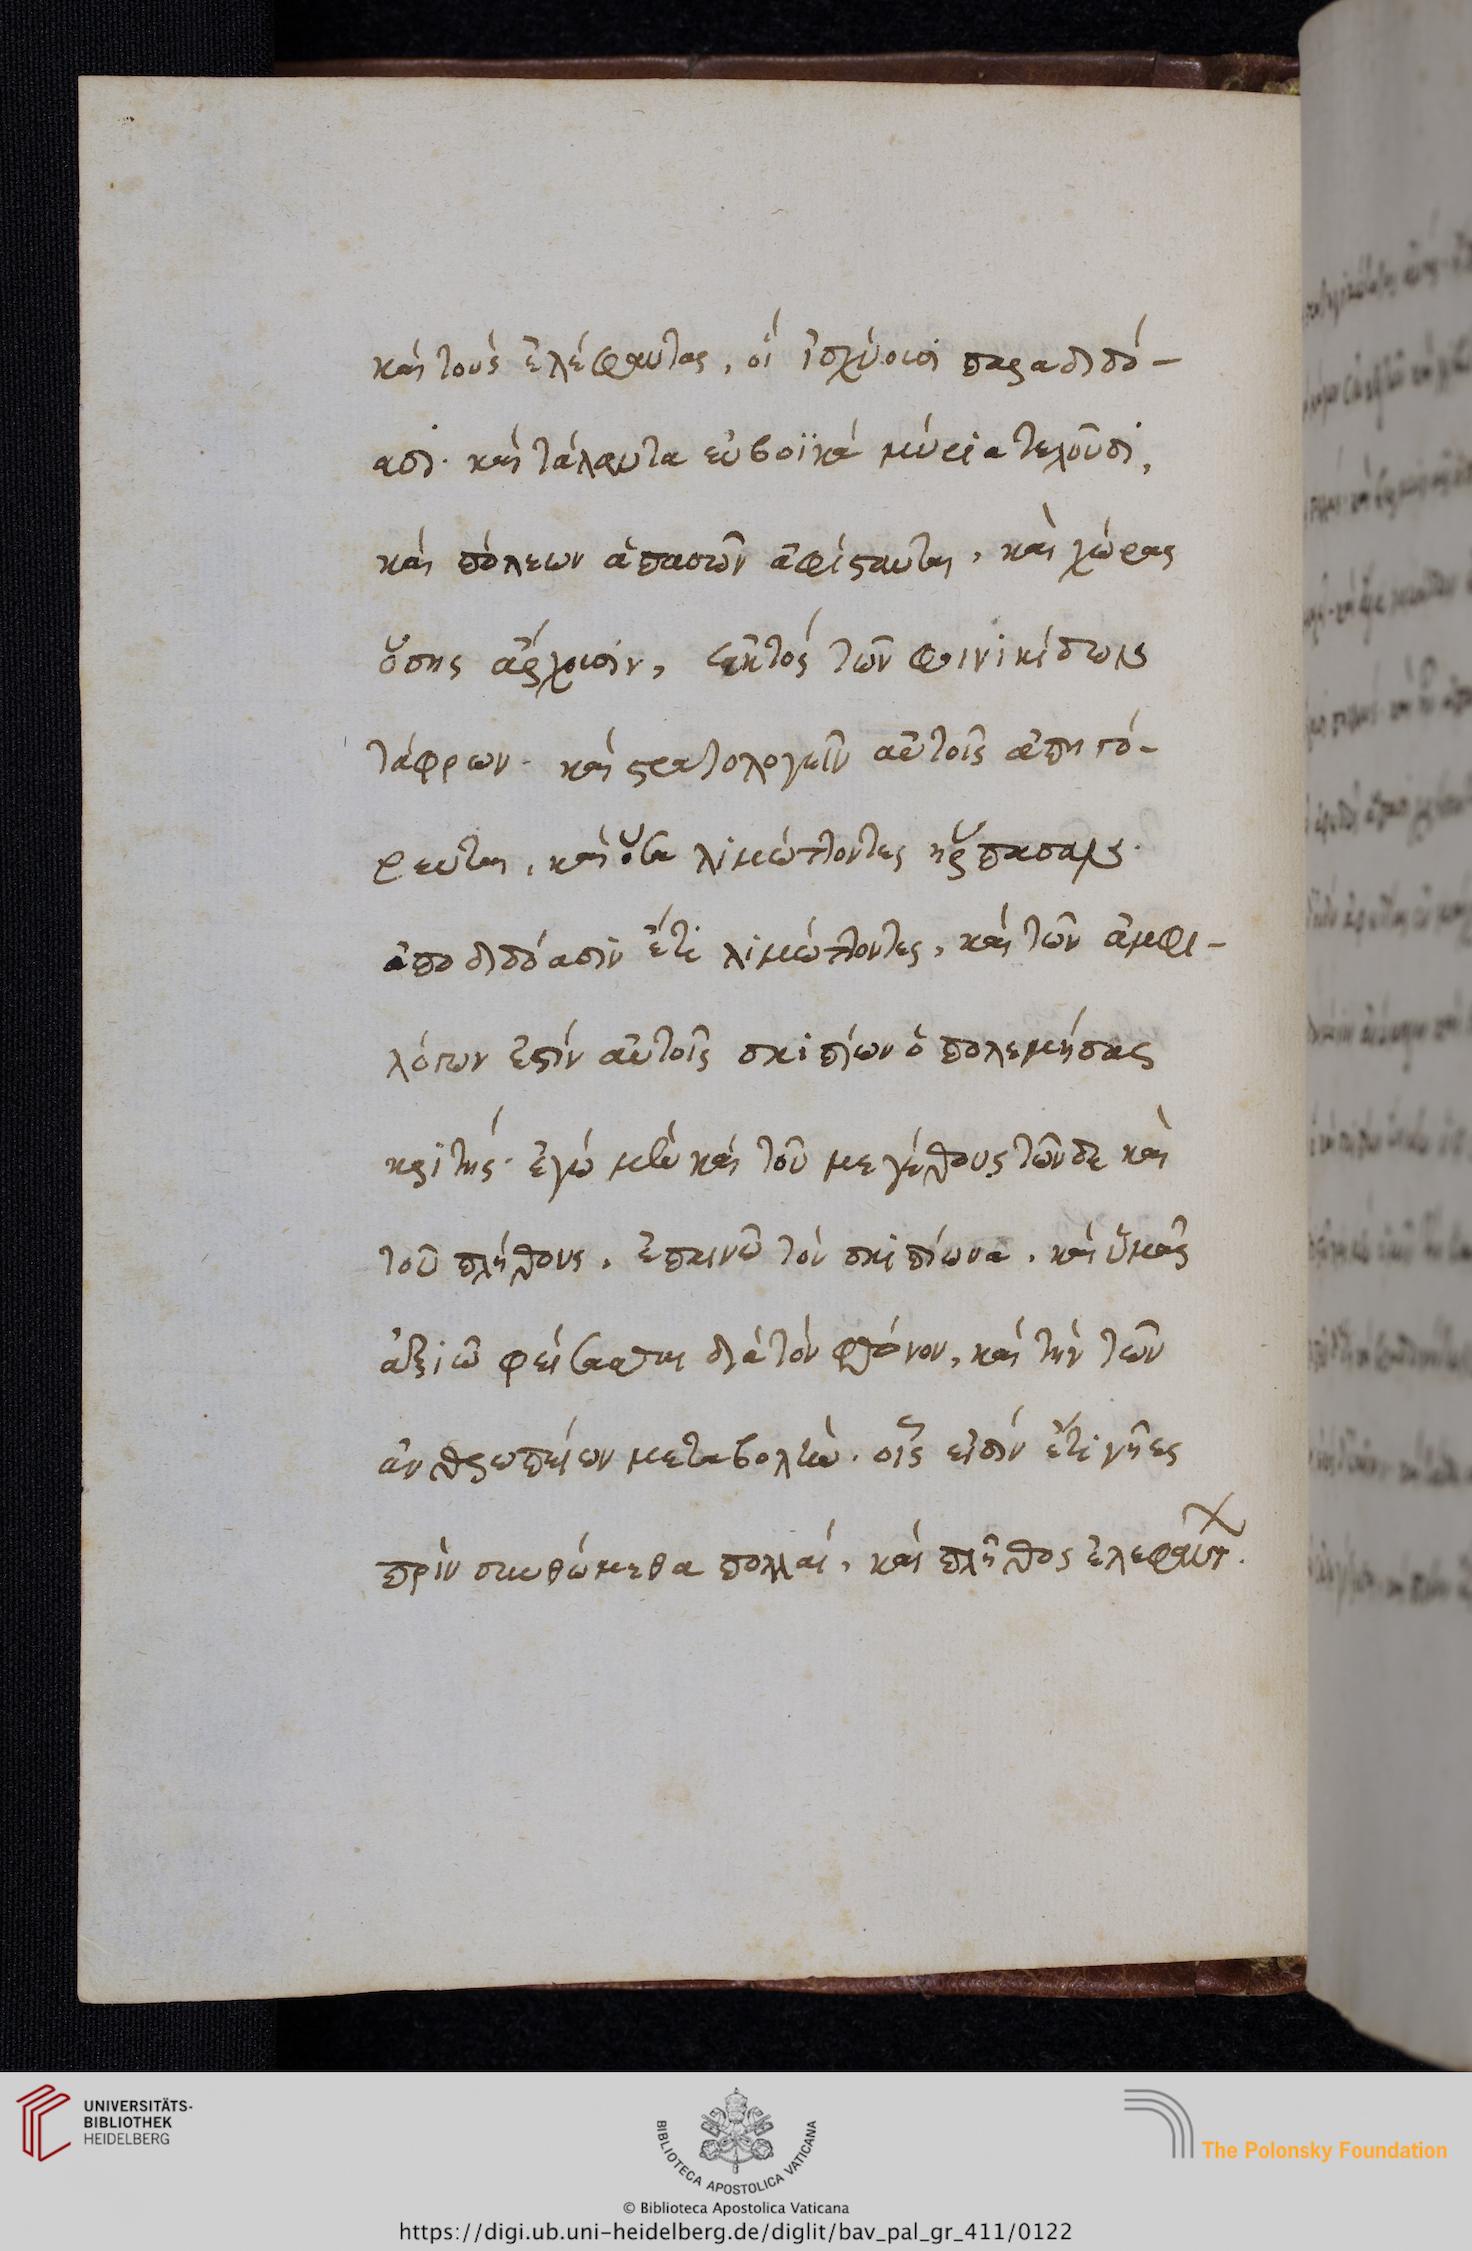 καὶ τοὺς ἐλέφαντας, οἷ ἰσχύουσι παραδιδό-
ασι· καὶ τάλαντα εὐβοϊκὰ μύρια τελοῦσι,
καὶ πόλεων ἁπασῶν ἀφίστανται, καὶ χώρας
ὅσης ἄρχουσιν, ἐκτὸς τῶν φοινικίδων
τάφρων· καὶ στρατολογεῖν αὐτοῖς ἀπηγό-
ρευται, καὶ ὅσα λιμώττοντες ἥρπασαν·
ἀποδιδόασιν ἔτι λιμώττοντες, καὶ τῶν ἀμφι-
λόγων ἐστὶν αὐτοῖς σκιπίων ὁ πολεμήσας
κριτής· ἐγὼ μὲν καὶ τοῦ μεγέθους τῶνδε καὶ
τοῦ πλήθους, ἐπαινῶ τὸν σκιπίωνα, καὶ ὑμᾶς
ἀξιῶ φείσασθαι διὰ τὸν φθόνον, καὶ τὴν τῶν
ἀνθρωπείων μεταβολήν· οἷς εἰσὶν ἔτι νῆες
πρὶν συνθώμεθα πολλαί, καὶ πλῆθος ἐλεφάντ.
UNIVERSITÄTS-
BIBLIOTHEK
HEIDELBERG
BIBLIOTECA APOSTOLICA VATICANA
The Polonsky Foundation
© Biblioteca Apostolica Vaticana
https://digi.ub.uni-heidelberg.de/diglit/bav_pal_gr_411/0122